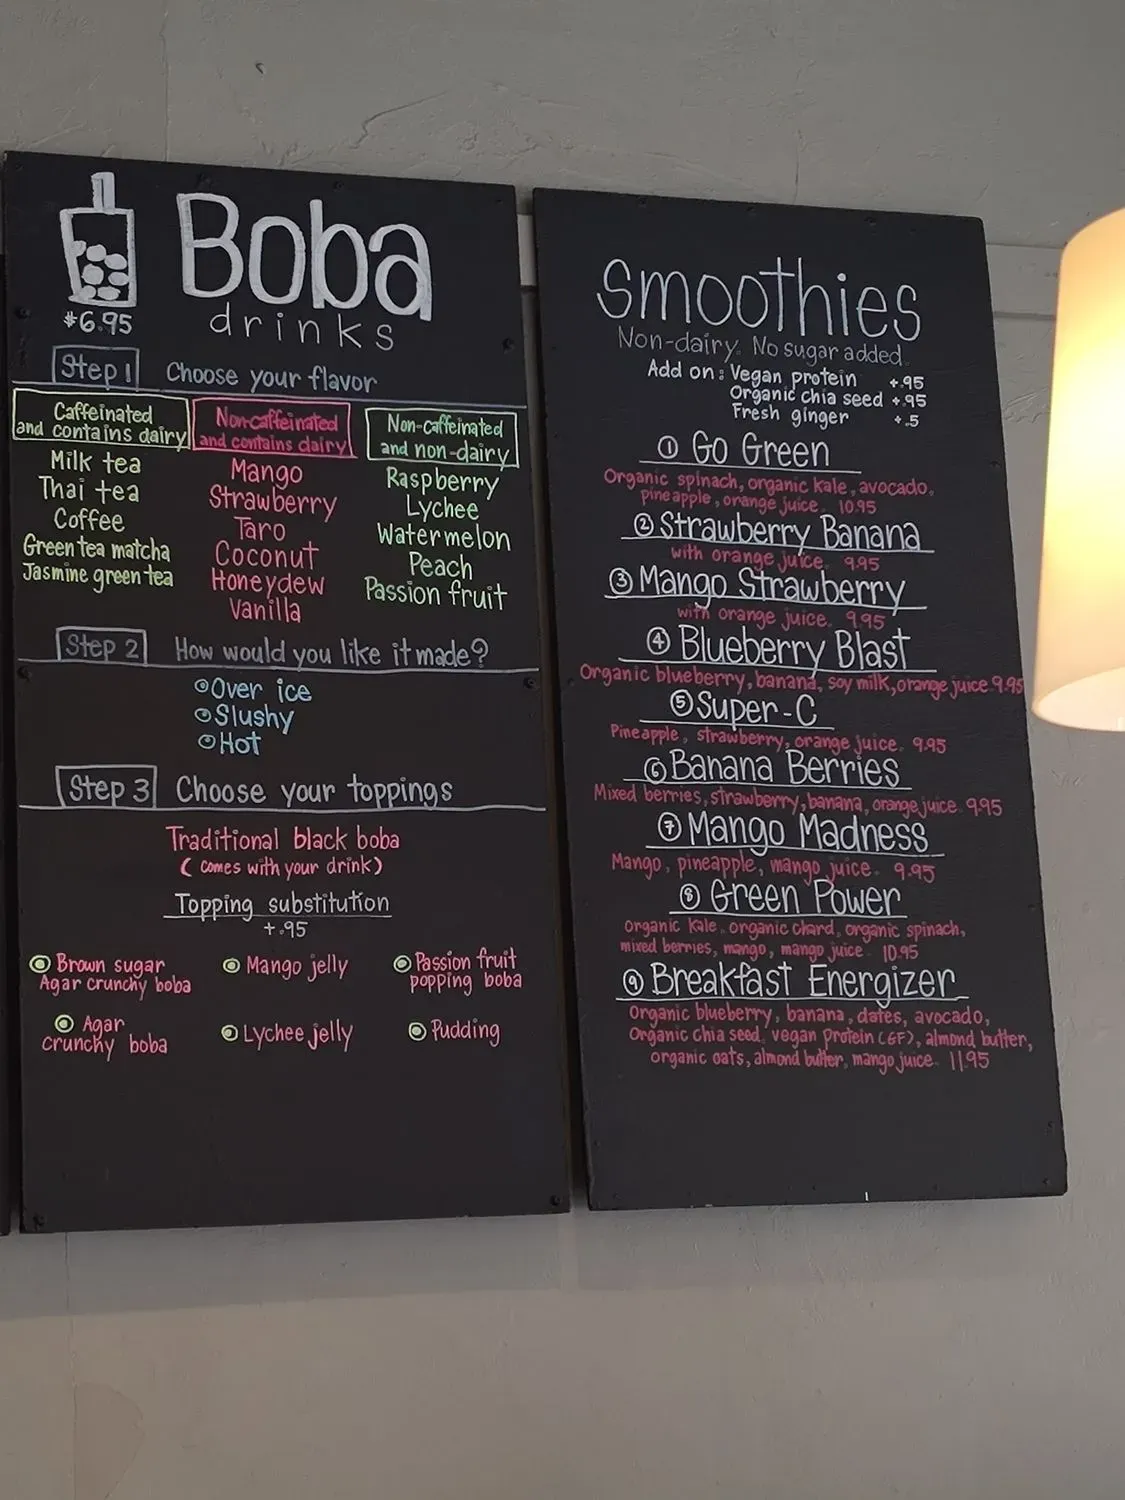 Boba
drinks
$6.95
Step 1 Choose your flavor
Caffeinated
and contains dairy
Milk tea
Thai tea
Coffee
Green tea matcha
Jasmine green tea
Non-caffeinated
and contains dairy
Mango
Strawberry
Taro
Coconut
Honeydew
Vanilla
Non-caffeinated
and non-dairy
Raspberry
Lychee
Watermelon
Peach
Passion fruit
Step 2 How would you like it made?
Over ice
Slushy
Hot
Step 3 Choose your toppings
Traditional black boba
(comes with your drink)
Topping substitution
+.95
Brown sugar
Agar crunchy boba
Mango jelly
Passion fruit
popping boba
Agar
crunchy boba
Lychee jelly
Pudding
Smoothies
Non-dairy. No sugar added.
Add on: Vegan protein +.95
Organic chia seed +.95
Fresh ginger +.5
① Go Green
Organic spinach, organic kale, avocado,
pineapple, orange juice. 10.95
② Strawberry Banana
with orange juice. 9.95
③ Mango Strawberry
with orange juice. 9.95
④ Blueberry Blast
Organic blueberry, banana, soy milk, orange juice 9.95
⑤ Super-C
Pineapple, strawberry, orange juice. 9.95
⑥ Banana Berries
Mixed berries, strawberry, banana, orange juice. 9.95
⑦ Mango Madness
Mango, pineapple, mango juice. 9.95
⑧ Green Power
Organic Kale, organic chard, organic spinach,
mixed berries, mango, mango juice. 10.95
⑨ Breakfast Energizer
Organic blueberry, banana, dates, avocado,
Organic chia seed, vegan Protein (GF), almond butter,
organic oats, almond butter, mango juice. 11.95